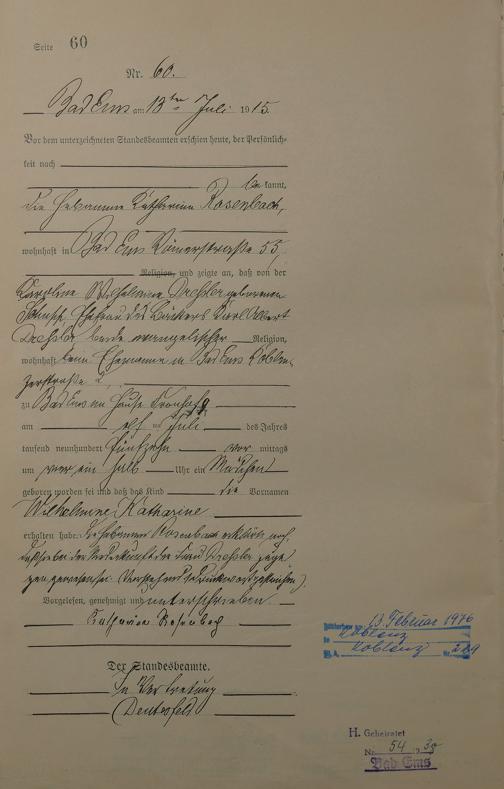 Seite 60
Nr. 60.
Bad Ems am 13ten Juli 1915.
Vor dem unterzeichneten Standesbeamten erschien heute, der Persönlich-
keit nach
bekannt,
die Hebamme Katharina Rosenbach,
wohnhaft in Bad Ems Römerstraße 55,
Religion, und zeigte an, daß von der
Karoline Wilhelmine Drechsler geborenen
Ehefrau des Bäckers Karl Albert
Drechsler, beide evangelischer Religion,
wohnhaft beim Ehemanne in Bad Ems Koblen-
zerstraße
zu Bad Ems im Hause
am elf ten Juli des Jahres
tausend neunhundert fünfzehn vor mittags
um vier ein halb Uhr ein Mädchen
geboren worden sei und daß das Kind die Vornamen
Wilhelmine Katharine
erhalten habe. Die Hebamme Rosenbach erklärte noch,
daß sie bei der Niederkunft der Frau Drechsler zuge
gen gewesen sei.
Vorgelesen, genehmigt und unterschrieben.
Katharina Rosenbach
Der Standesbeamte.
In Vertretung
13. Februar 1976
Koblenz
Koblenz Nr.
H. Geheiratet
Nr. 54 19
Bad Ems